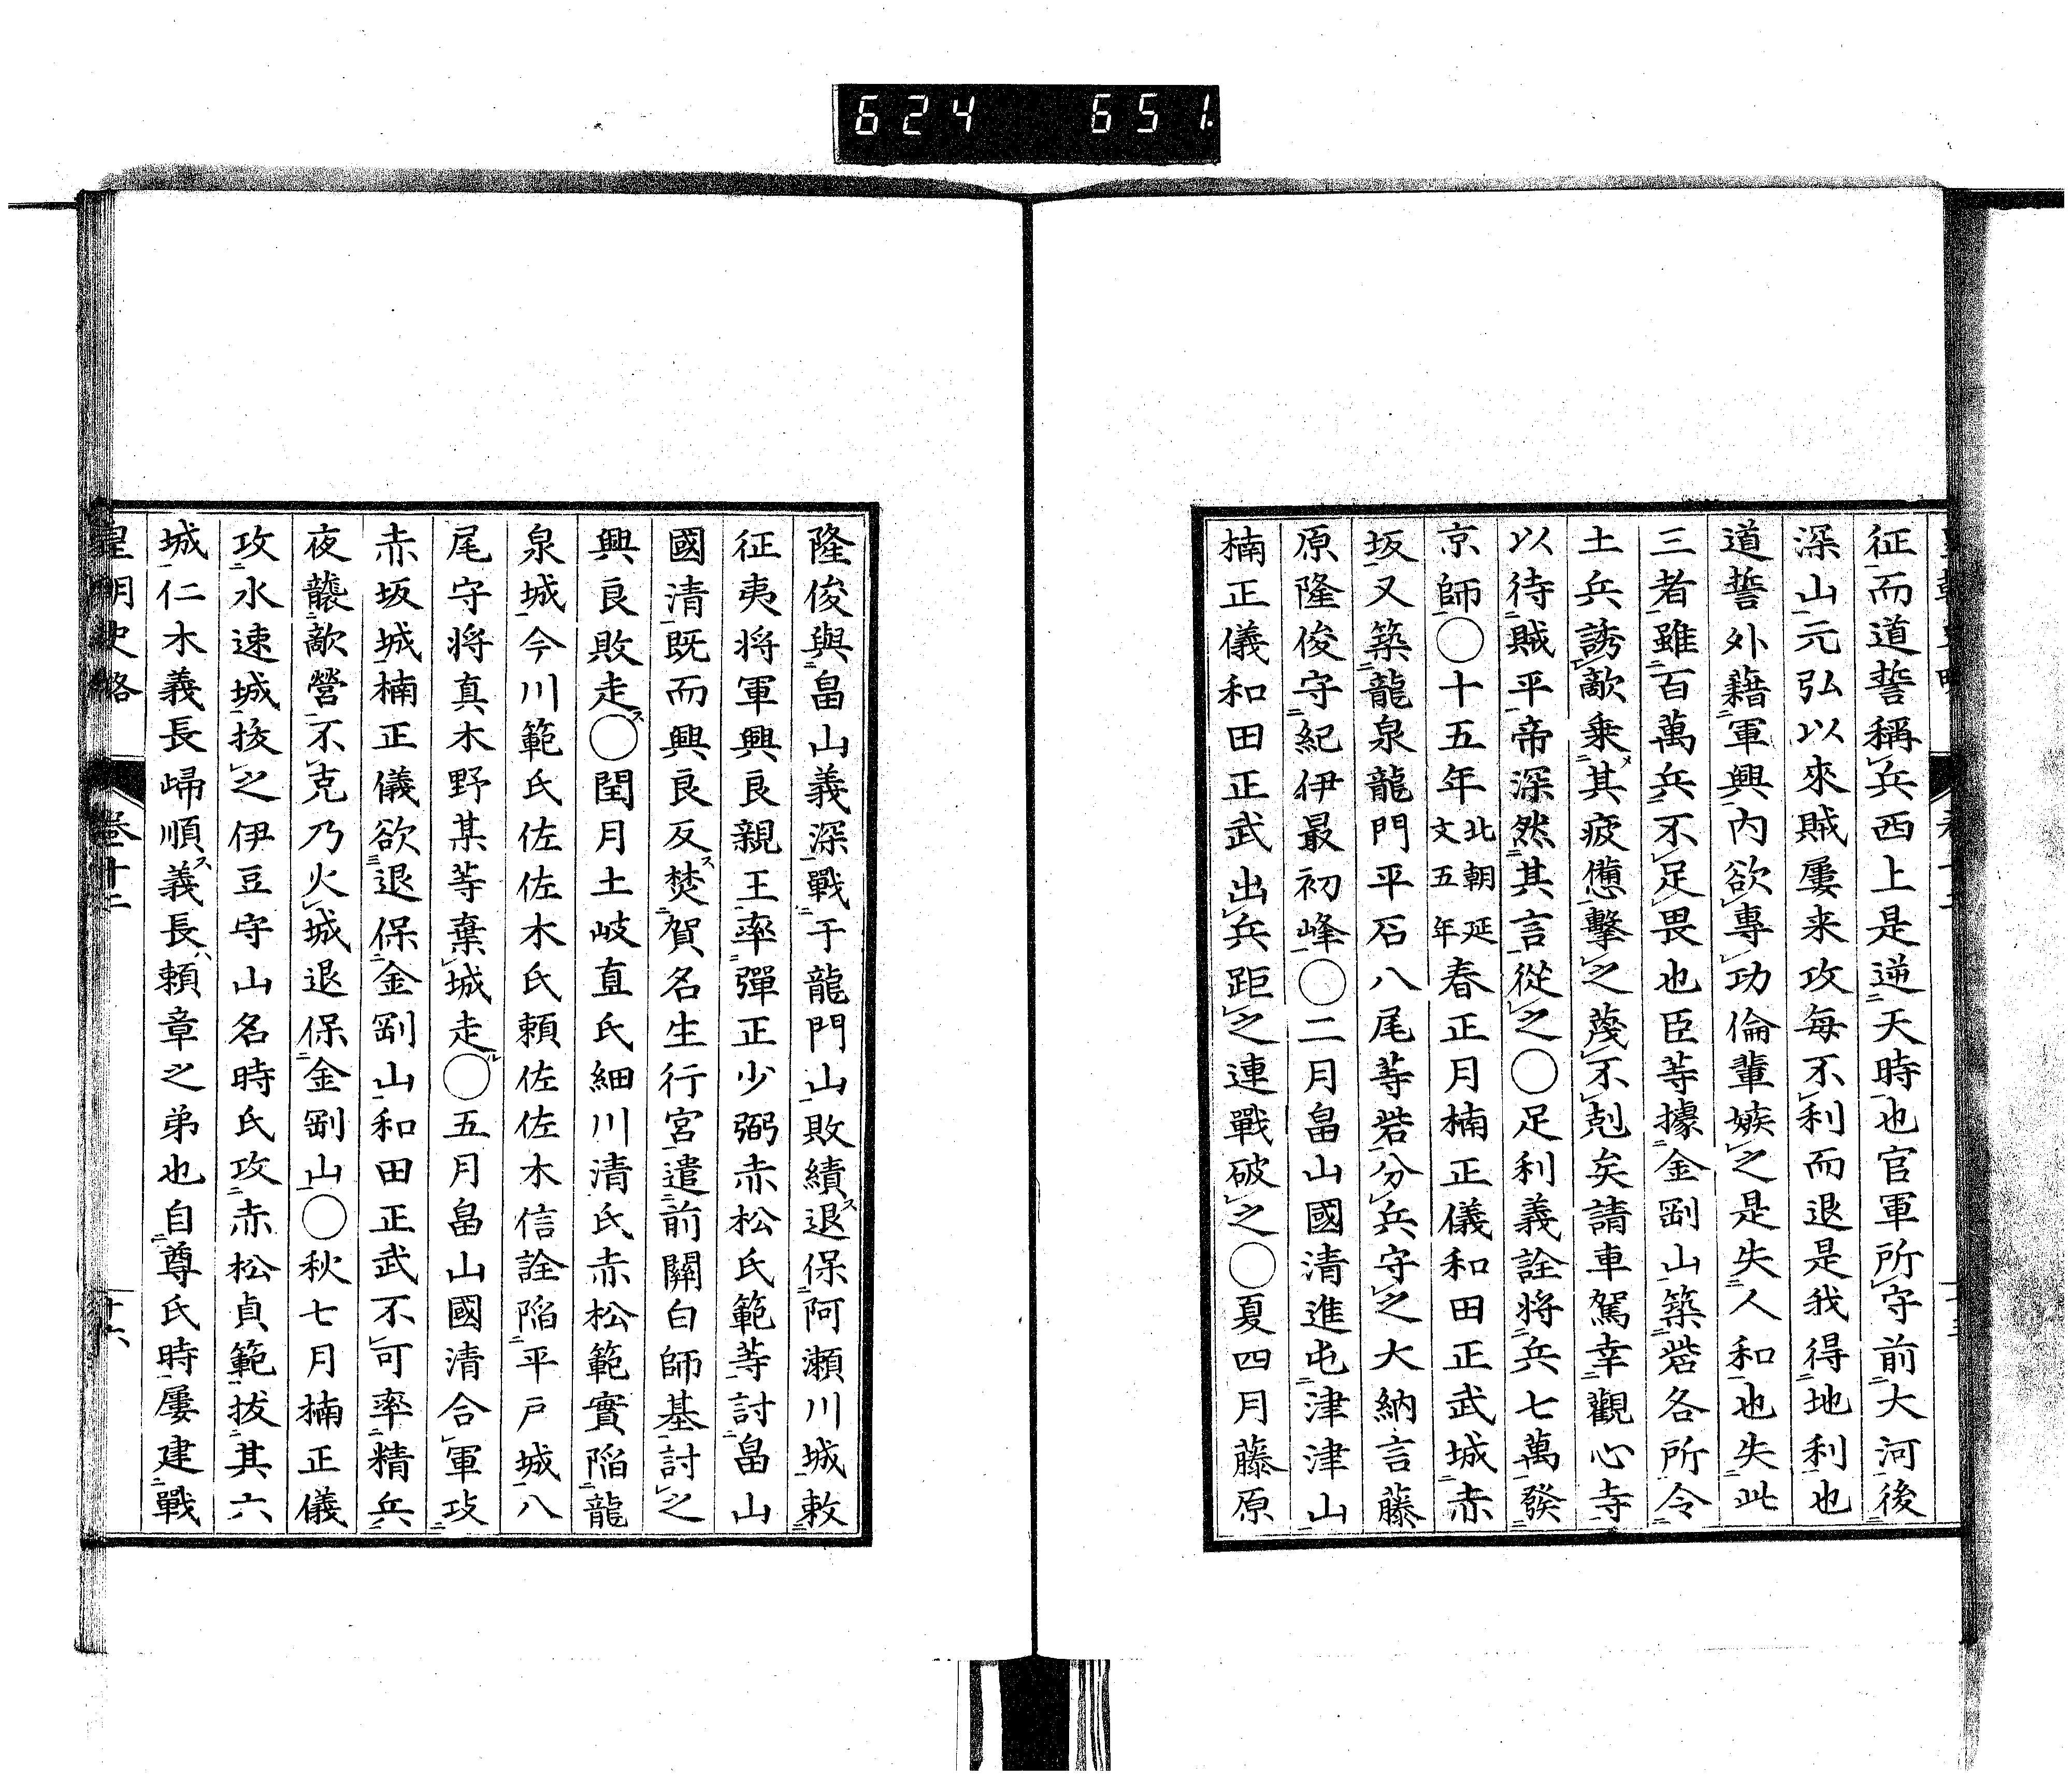 624 651
征而道誓稱兵西上是逆天時也官軍所守前大河後
深山元弘以來賊屢来攻每不利而退是我得地利也
道誓外藉軍興内欲專功倫輩嫉之是失人和也失此
三者雖百萬兵不足畏也臣等據金剛山築砦各所令
土兵誘敵乗其疲憊擊之蔑不剋矣請車駕幸觀心寺
以待賊平帝深然其言從之〇足利義詮将兵七萬發
京師〇十五年北朝延文五年春正月楠正儀和田正武城赤
坂又築龍泉龍門平石八尾等砦分兵守之大納言藤
原隆俊守紀伊最初峰〇二月畠山國清進屯津津山
楠正儀和田正武出兵距之連戰破之〇夏四月藤原
隆俊與畠山義深戰于龍門山敗績退保阿瀬川城敕
征夷将軍興良親王率彈正少弼赤松氏範等討畠山
國清既而興良反焚賀名生行宮遣前關白師基討之
興良敗走〇閏月土岐直氏細川清氏赤松範實陥龍
泉城今川範氏佐佐木氏頼佐佐木信詮陥平戸城八
尾守将真木野某等棄城走〇五月畠山國清合軍攻
赤坂城楠正儀欲退保金剛山和田正武不可率精兵
夜襲敵營不克乃火城退保金剛山〇秋七月楠正儀
攻水速城抜之伊豆守山名時氏攻赤松貞範拔其六
城仁木義長歸順義長頼章之弟也自尊氏時屢建戰
皇朝史略 卷十二 十六